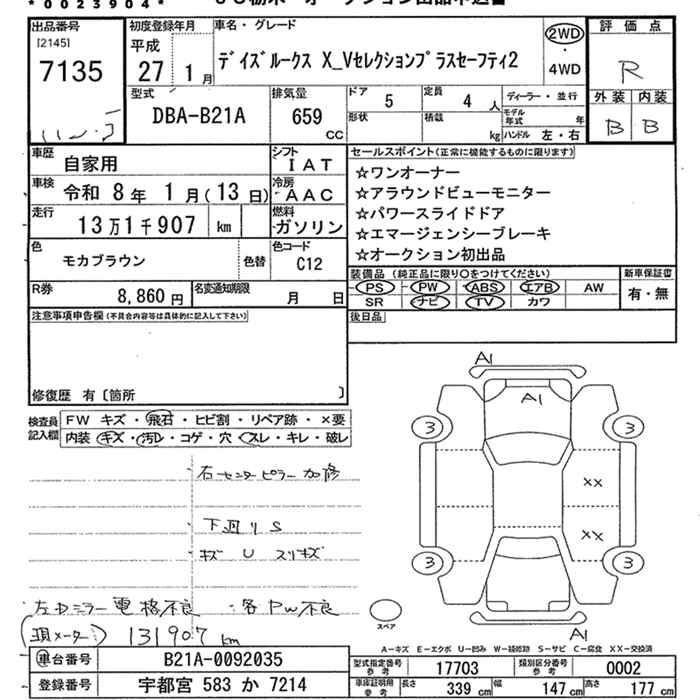 *0023904*
出品番号 初度登録年月 車名・グレード 評価点
[2145] 平成 デイズルークス X_Vセレクションプラスセーフティ2 2WD R
7135 27 1月 ・4WD
型式 排気量 ドア 定員 ディーラー・並行 外装 内装
DBA-B21A 659 CC 5 4人 モデル年式 年 B B
形状 積載 kg ハンドル 左・右
車歴 自家用 シフト IAT セールスポイント(正常に機能するものに限ります)
車検 令和 8年 1月(13日) 冷房 AAC ☆ワンオーナー
☆アラウンドビューモニター
走行 13万1千907 km 燃料 ガソリン ☆パワースライドドア
☆エマージェンシーブレーキ
色 モカブラウン 色替 色コード C12 ☆オークション初出品
装備品 (純正品に限り○をつけてください) 新車保証書
R券 8,860円 名変通知期限 月 日 PS PW ABS エアB AW 有・無
SR ナビ TV カワ
注意事項申告欄(不具合内容等は具体的に記入して下さい) 後日品
修復歴 有〔箇所 〕
A1
A1
3 3
××
××
3 3
A1
スペア
検査員記入欄 FW キズ・飛石・ヒビ割・リペア跡・×要
内装 キズ・汚レ・コゲ・穴・スレ・キレ・破レ
右センターピラー加修
下廻りS
キズ U スリキズ
左ドミラー電格不良 ・各PW不良
(現メーター) 131907km
A-キズ E-エクボ U-凹み W-補修跡 S-サビ C-腐食 XX-交換済
車台番号 B21A-0092035 型式指定番号 参考 17703 類別区分番号 参考 0002
登録番号 宇都宮 583 か 7214 車庫証明用 参考 長さ 339cm 幅 147cm 高さ 177cm